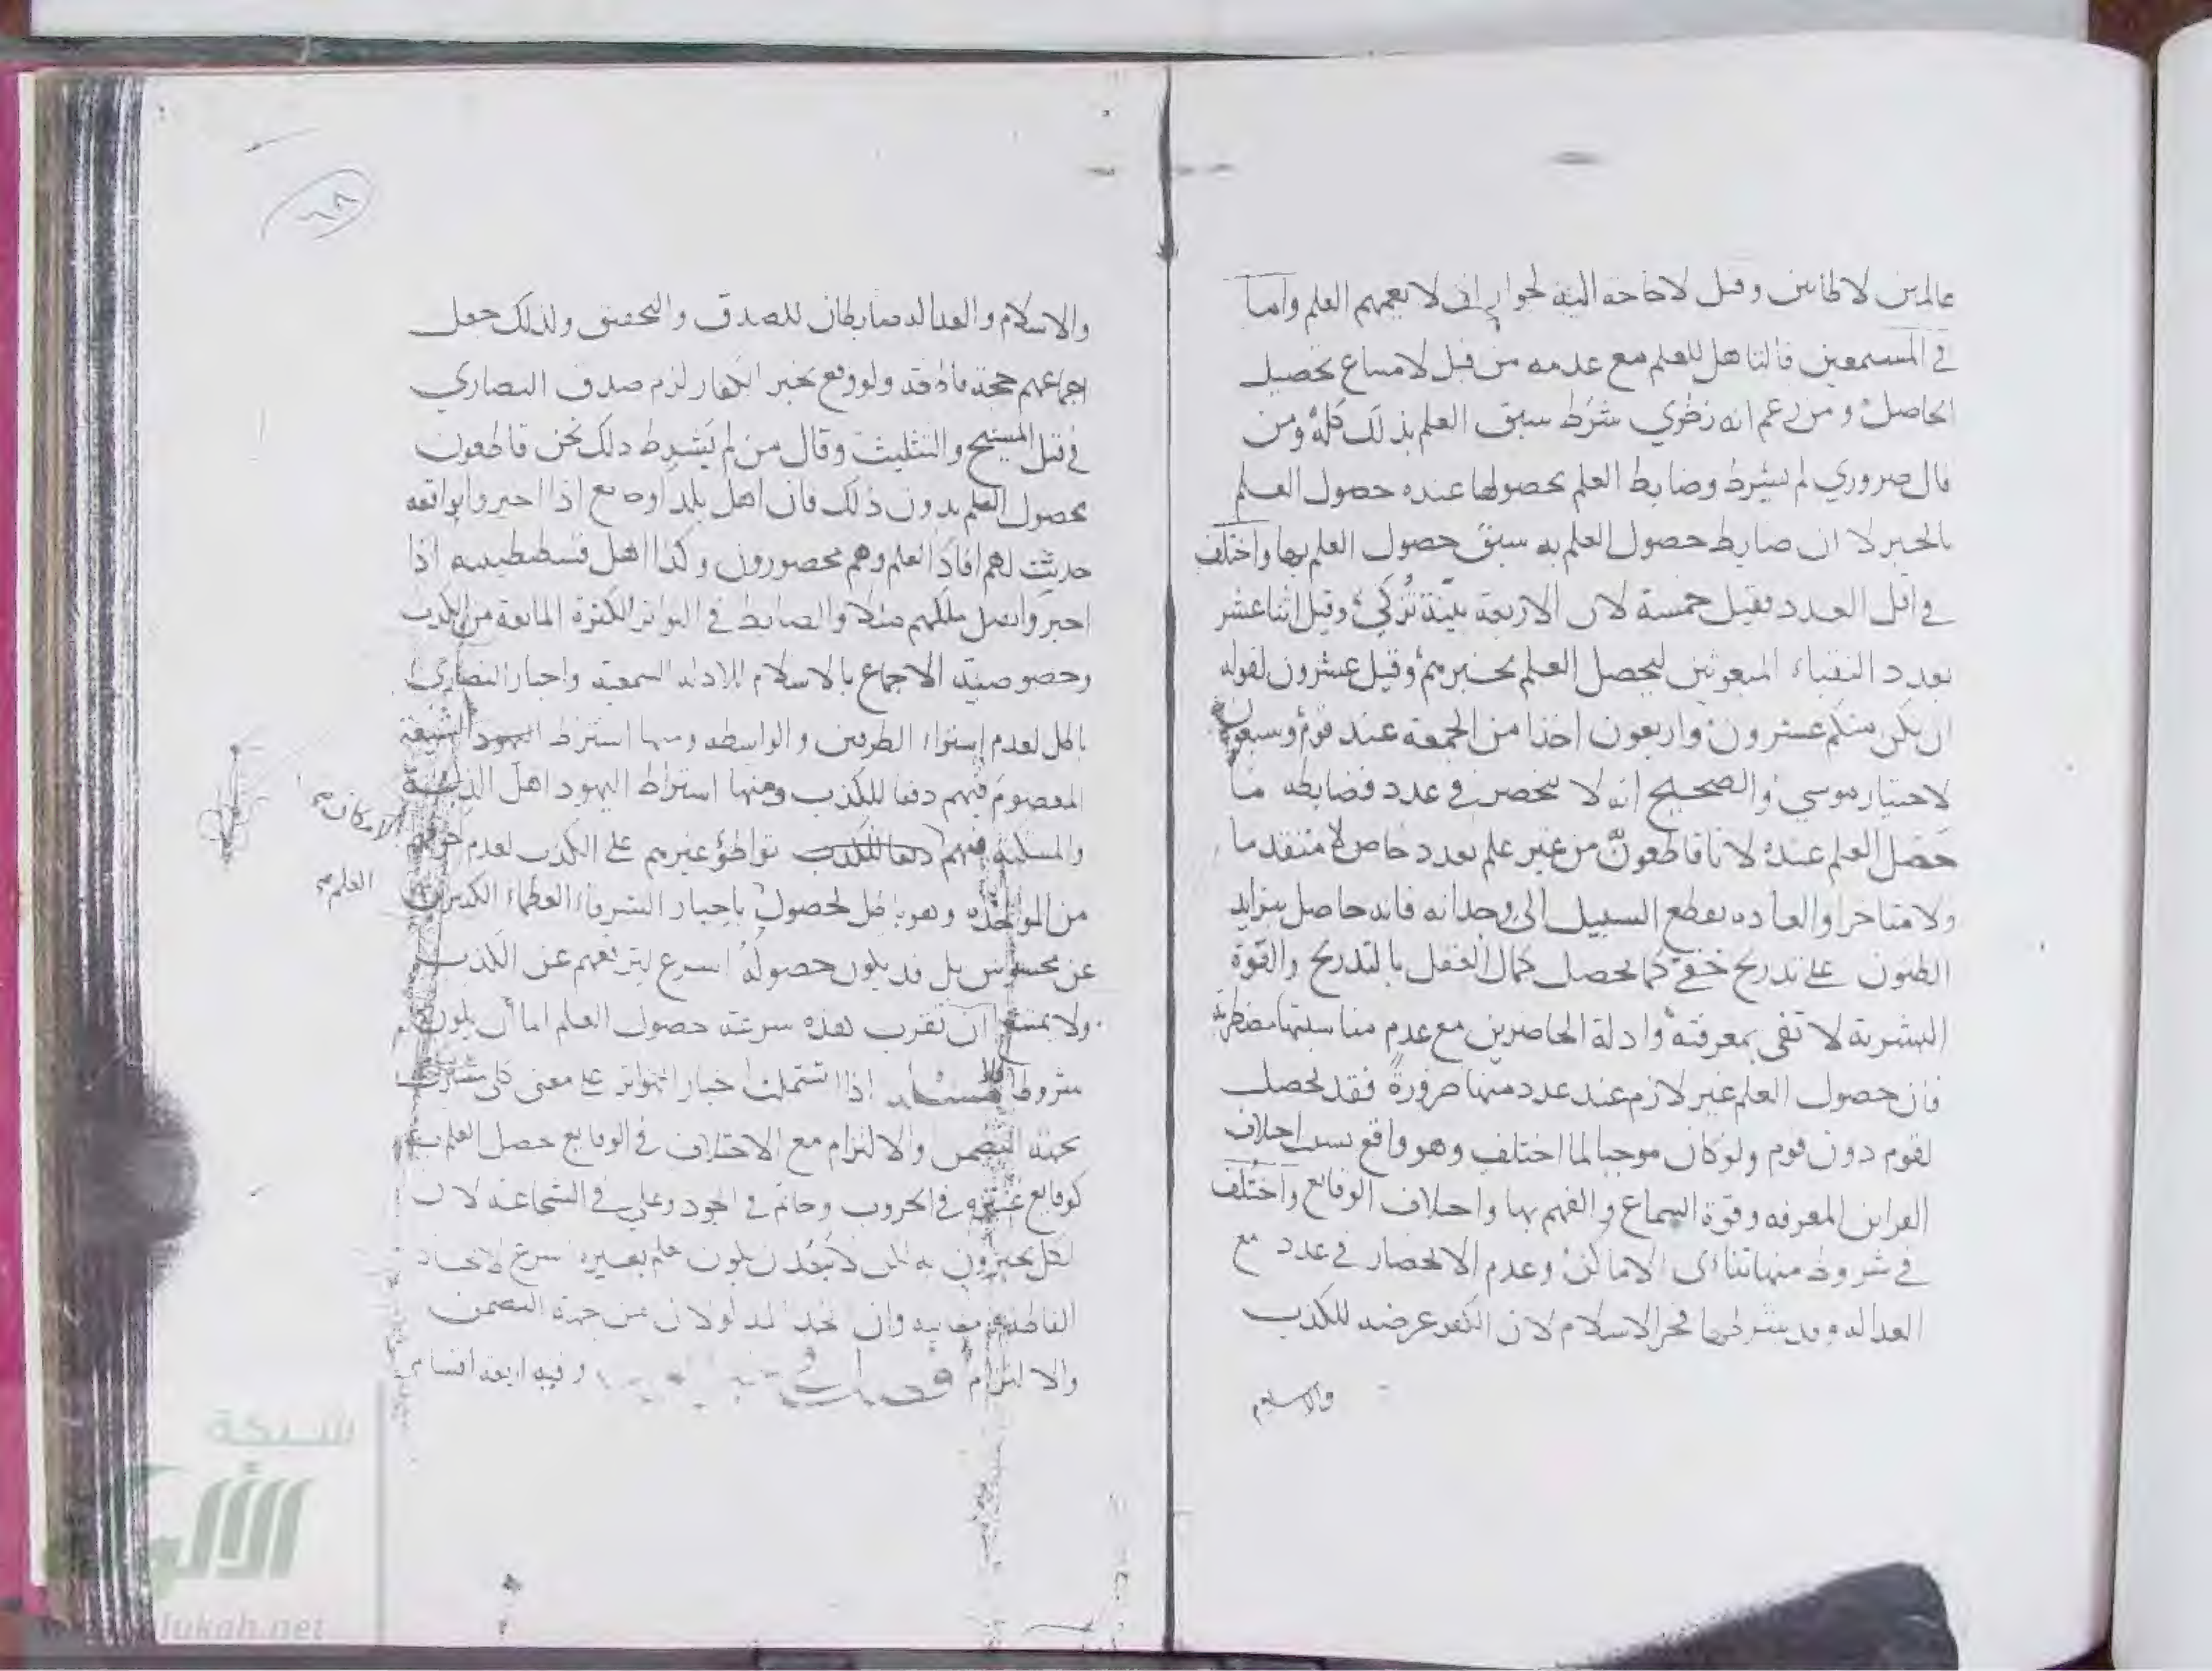 عالمين لا ظانين وقيل لا حاجة اليه لجواز ان لا يعمهم العلم واما
في المستمعين فالتاهل للعلم مع عدمه من قبل لامتناع تحصيل
الحاصل ومن زعم انه نظري شرط سبق العلم بذلك كله ومن
قال ضروري لم يشرط وضابط العلم بحصولها عنده حصول العلم
بالخبر لا ان ضابط حصول العلم به سبق حصول العلم بها واختلف
في اقل العدد فقيل خمسة لان الاربعة بينة تزكي وقيل اثنا عشر
بعدد النقباء المبعوثين ليحصل العلم بخبرهم وقيل عشرون لقوله
ان يكن منكم عشرون واربعون اخذا من الجمعة عند قوم وسبعون
لاختيار موسى والصحيح انه لا ينحصر في عدد فضابطه ما
حصل العلم عنده لانا قاطعون من غير علم بعدد خاص لا متقدما
ولا متاخرا والعادة تقطع السبيل الى وجدانه فانه حاصل بتزايد
الظنون على تدريج خفي كما يحصل كمال العقل بالتدريج والقوة
البشرية لا تفي بمعرفته وادلة الحاصرين مع عدم مناسبتها مضطربة
فان حصول العلم غير لازم عند عدد منها ضرورة فقد يحصل
لقوم دون قوم ولو كان موجبا لما اختلف وهو واقع بسبب اختلاف
القراين المعرفه وقوة السماع والفهم بها واختلاف الوقايع واختلف
في شروط منها تنائي الاماكن وعدم الانحصار في عدد مع
العدالة وقد يشرطها فخر الاسلام لان الكفر عرضه للكذب
والاسلام
٦٨
والاسلام والعدالة ضابطان للصدق والتحقيق ولذلك جعل
اجماعهم حجة ولو وقع بخبر الكفار لزم صدق النصاري
في قتل المسيح والتثليث وقال من لم يشرط ذلك نحن قاطعون
بحصول العلم بدون ذلك فان اهل بلد او جامع اذا اخبروا بواقعه
حدثت لهم افاد العلم وهم محصورون وكذا اهل قسطنطينيه اذا
اخبروا بقتل ملكهم مثلا والضابط في التواتر الكثرة المانعة من الكذب
وخصوصية الاجماع بالاسلام للادلة السمعية واخبار النصارى
باطل لعدم استواء الطرفين والواسطه ومنها اشترط الشيعة
المعصوم فيهم دفعا للكذب ومنها اشتراط اليهود اهل الذلة
والمسكنة فيهم دفعا للكذب تواطؤ غيرهم على الكذب لعدم
لامكان صح
من المؤاخذه وهو باطل لحصول باخبار الشرفاء العظماء الكبيرين
العلم صح
عن محسوس بل قد يكون حصوله اسرع لترفعهم عن الكذب
ولا يمتنع ان تقرب هذه سرعة حصول العلم اما ان يكون
مشروطا فلا مسئلة اذا اشتملت اخبار التواتر على معنى كلي
بجهة التضمن والالتزام مع الاختلاف في الوقايع حصل العلم
كوقايع عنتره في الحروب وحاتم في الجود وعلي في الشجاعة لان
الفاظه وان مدلولا من جهة التضمن
والالتزام وفيه اربعة اقسام
شبكة
الألوكة
lukah.net